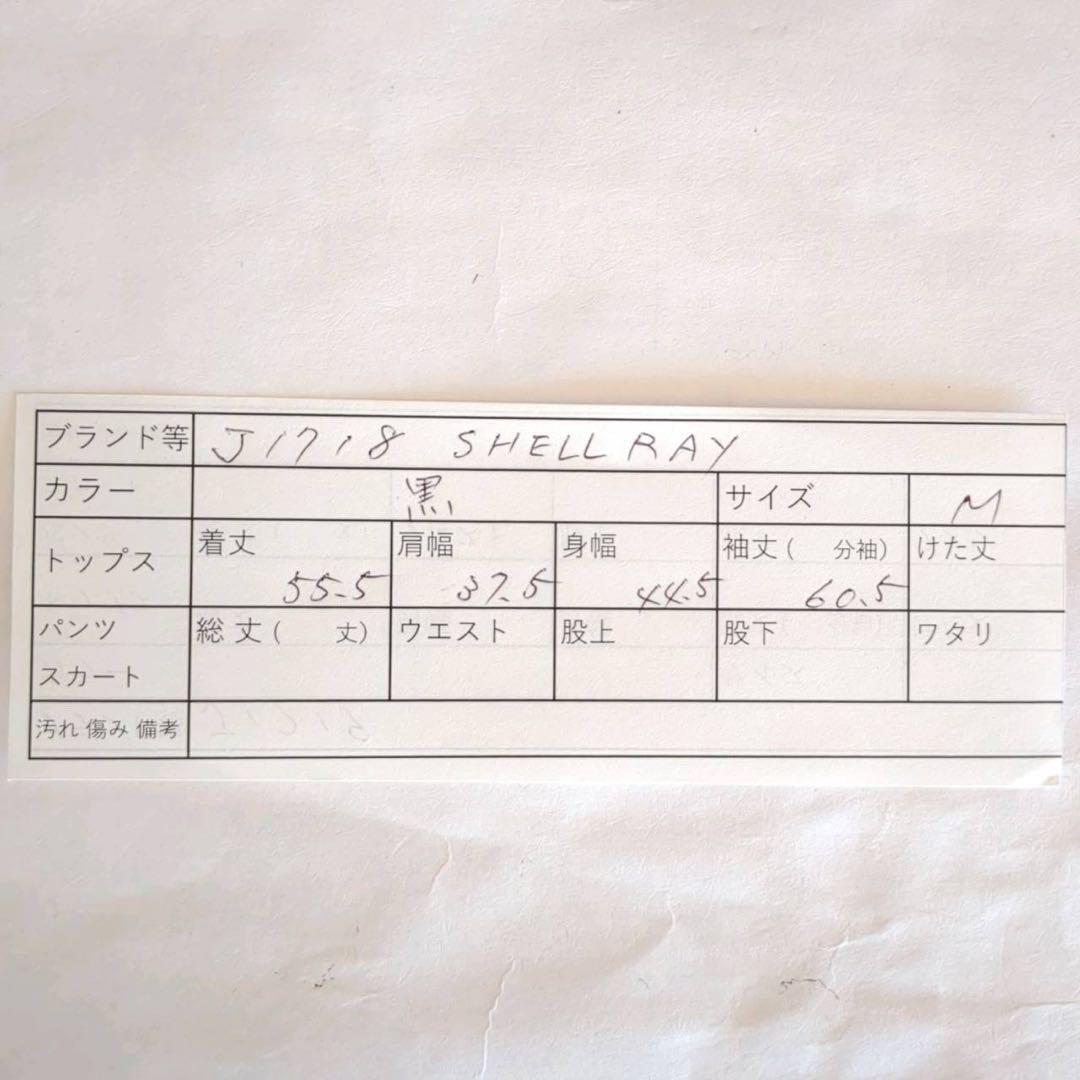 ブランド等 J1718 SHELL RAY
カラー 黒 サイズ M
トップス 着丈 肩幅 身幅 袖丈( 分袖) けた丈
55.5 37.5 44.5 60.5
パンツ 総丈( 丈) ウエスト 股上 股下 ワタリ
スカート
汚れ 傷み 備考